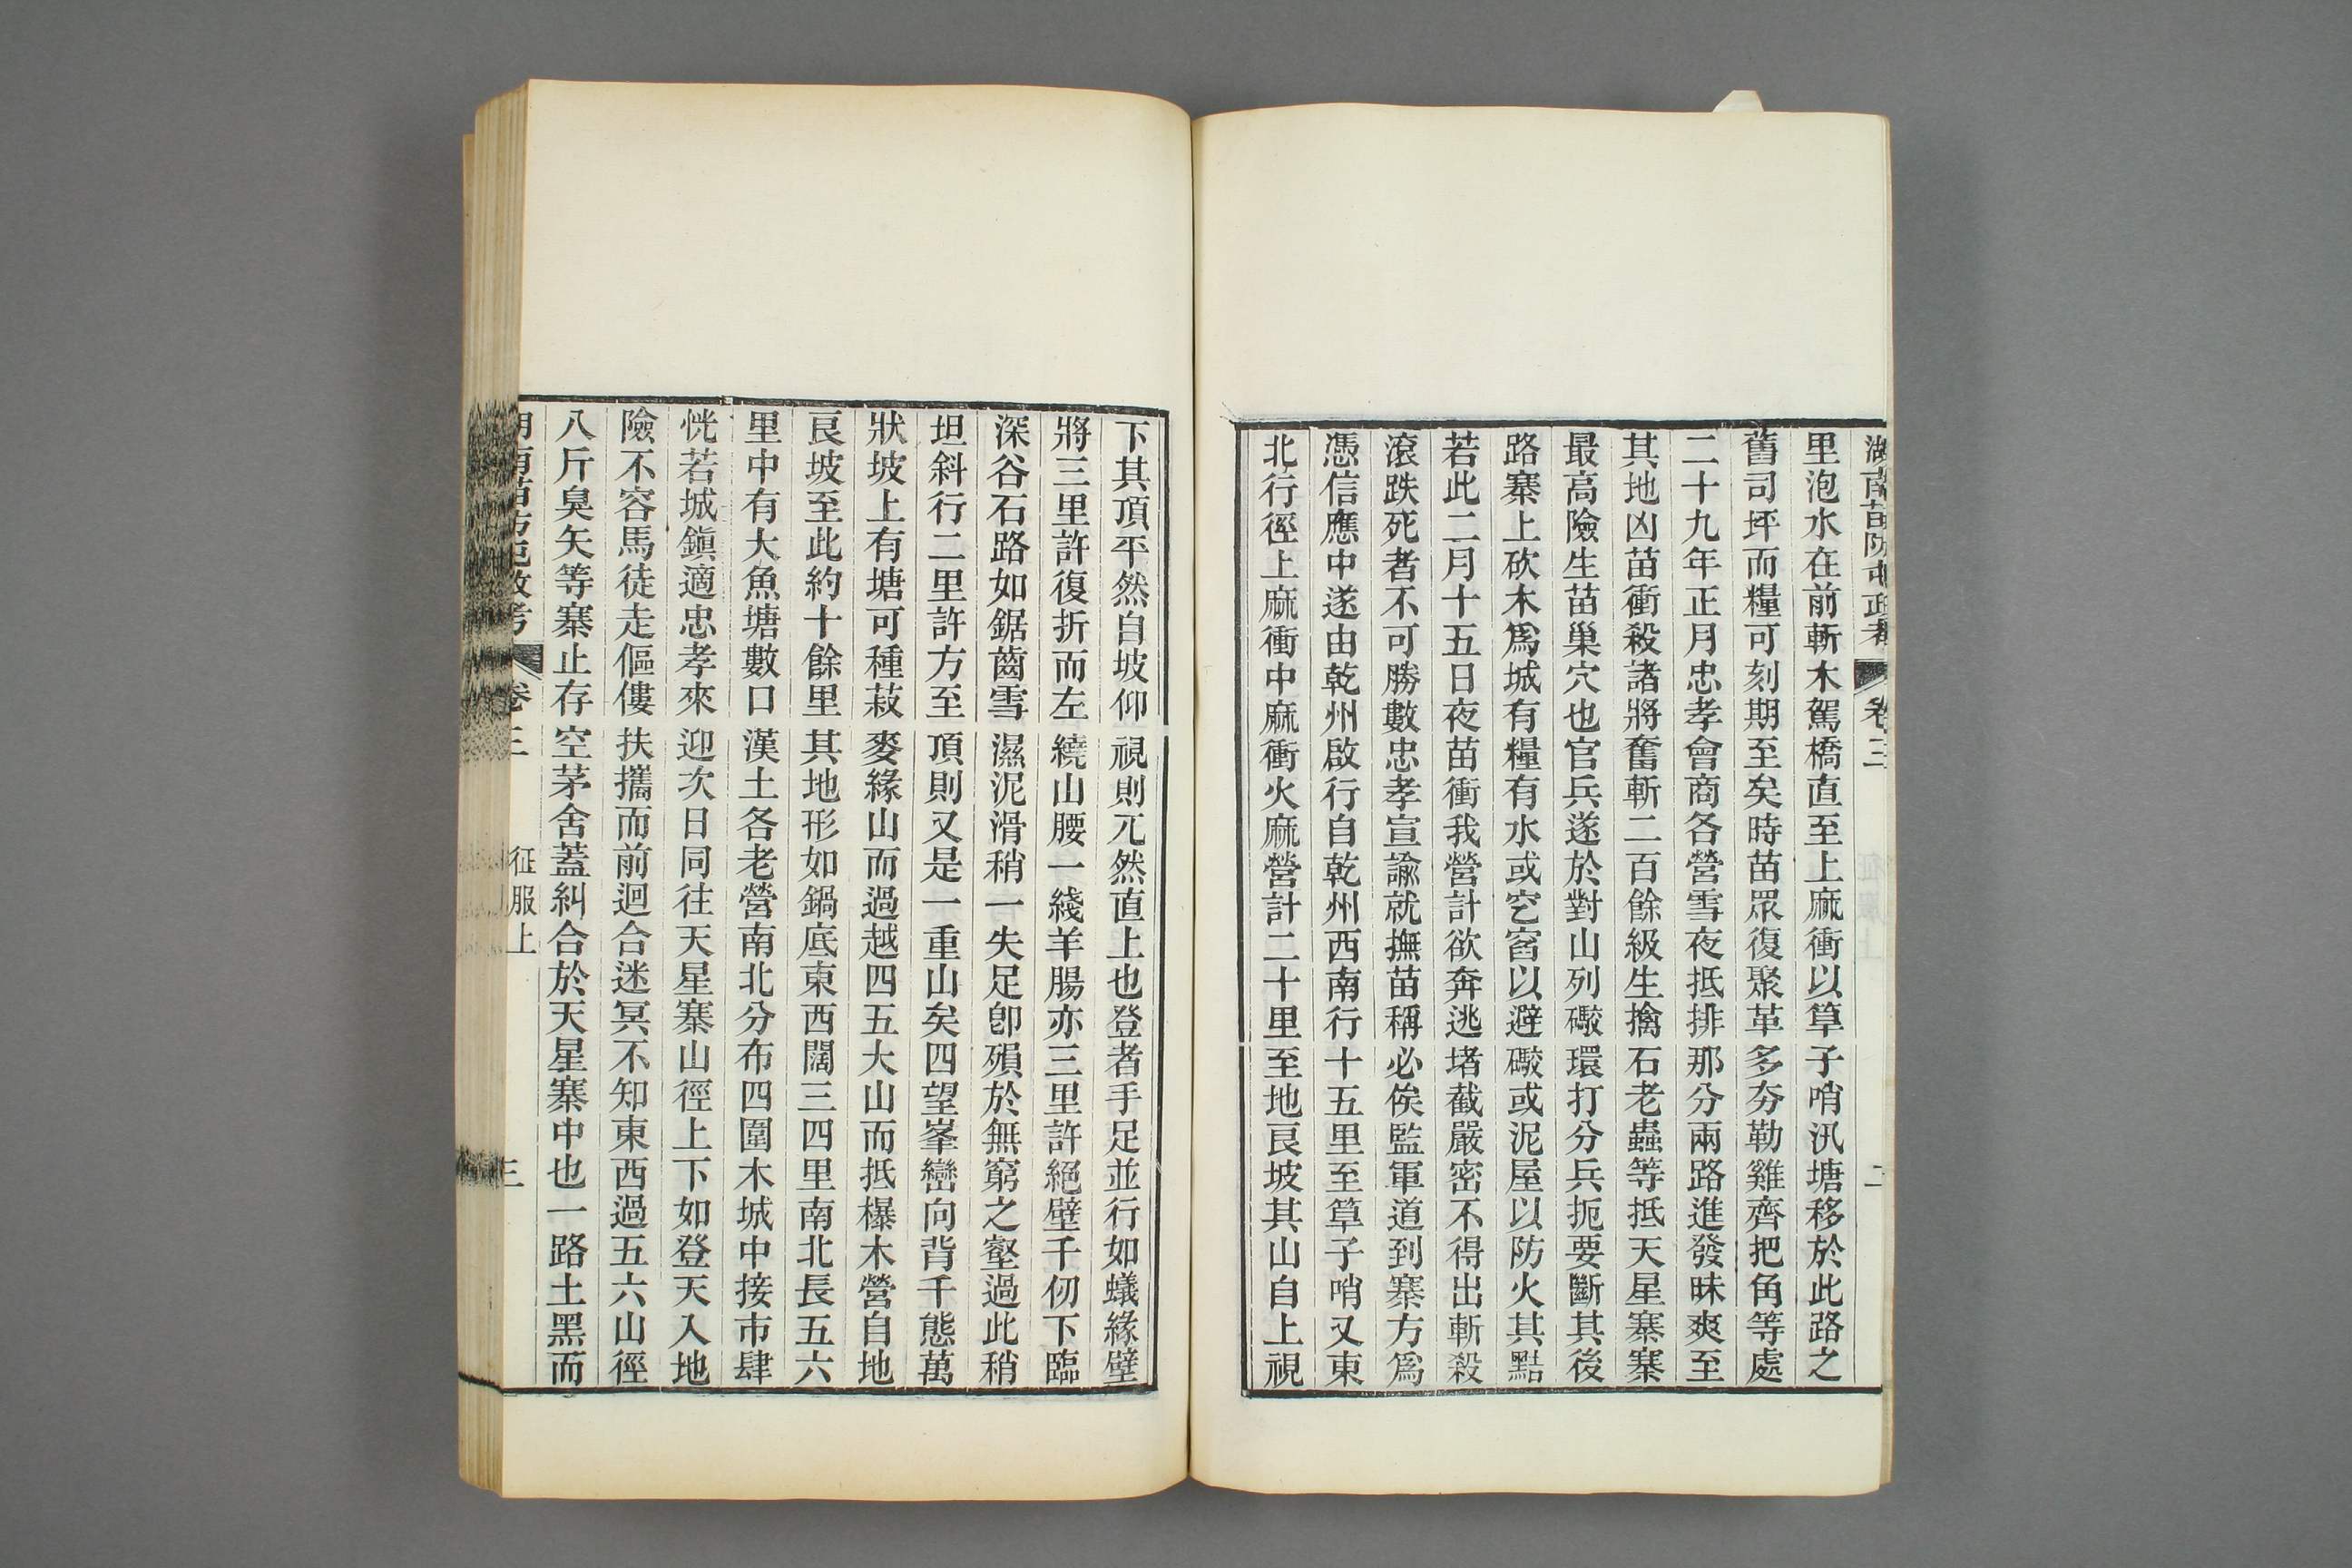 湖南苗防屯政考 卷三 二
里泡水在前斬木駕橋直至上麻衝以箄子哨汛塘移於此路之
舊司坪而糧可刻期至矣時苗眾復聚革多夯勒雞齊把角等處
二十九年正月忠孝會商各營雪夜抵排那分兩路進發昧爽至
其地凶苗衝殺諸將奮斬二百餘級生擒石老蟲等抵天星寨寨
最高險生苗巢穴也官兵遂於對山列礮環打分兵扼要斷其後
路寨上砍木爲城有糧有水或穵窞以避礮或泥屋以防火其黠
若此二月十五日夜苗衝我營計欲奔逃堵截嚴密不得出斬殺
滾跌死者不可勝數忠孝宣諭就撫苗稱必俟監軍道到寨方爲
憑信應中遂由乾州啟行自乾州西南行十五里至箄子哨又東
北行徑上麻衝中麻衝火麻營計二十里至地良坡其山自上視
下其頂平然自坡仰視則兀然直上也登者手足並行如蟻緣壁
將三里許復折而左繞山腰一綫羊腸亦三里許絕壁千仞下臨
深谷石路如鋸齒雪濕泥滑稍一失足卽殞於無窮之壑過此稍
坦斜行二里許方至頂則又是一重山矣四望峯巒向背千態萬
狀坡上有塘可種菽麥緣山而過越四五大山而抵欅木營自地
良坡至此約十餘里其地形如鍋底東西闊三四里南北長五六
里中有大魚塘數口漢土各老營南北分布四圍木城中接市肆
恍若城鎭適忠孝來迎次日同往天星寨山徑上下如登天入地
險不容馬徒走傴僂扶攜而前迴合迷冥不知東西過五六山徑
八斤臭矢等寨止存空茅舍蓋糾合於天星寨中也一路土黑而
湖南苗防屯政考 卷三 征服上 三